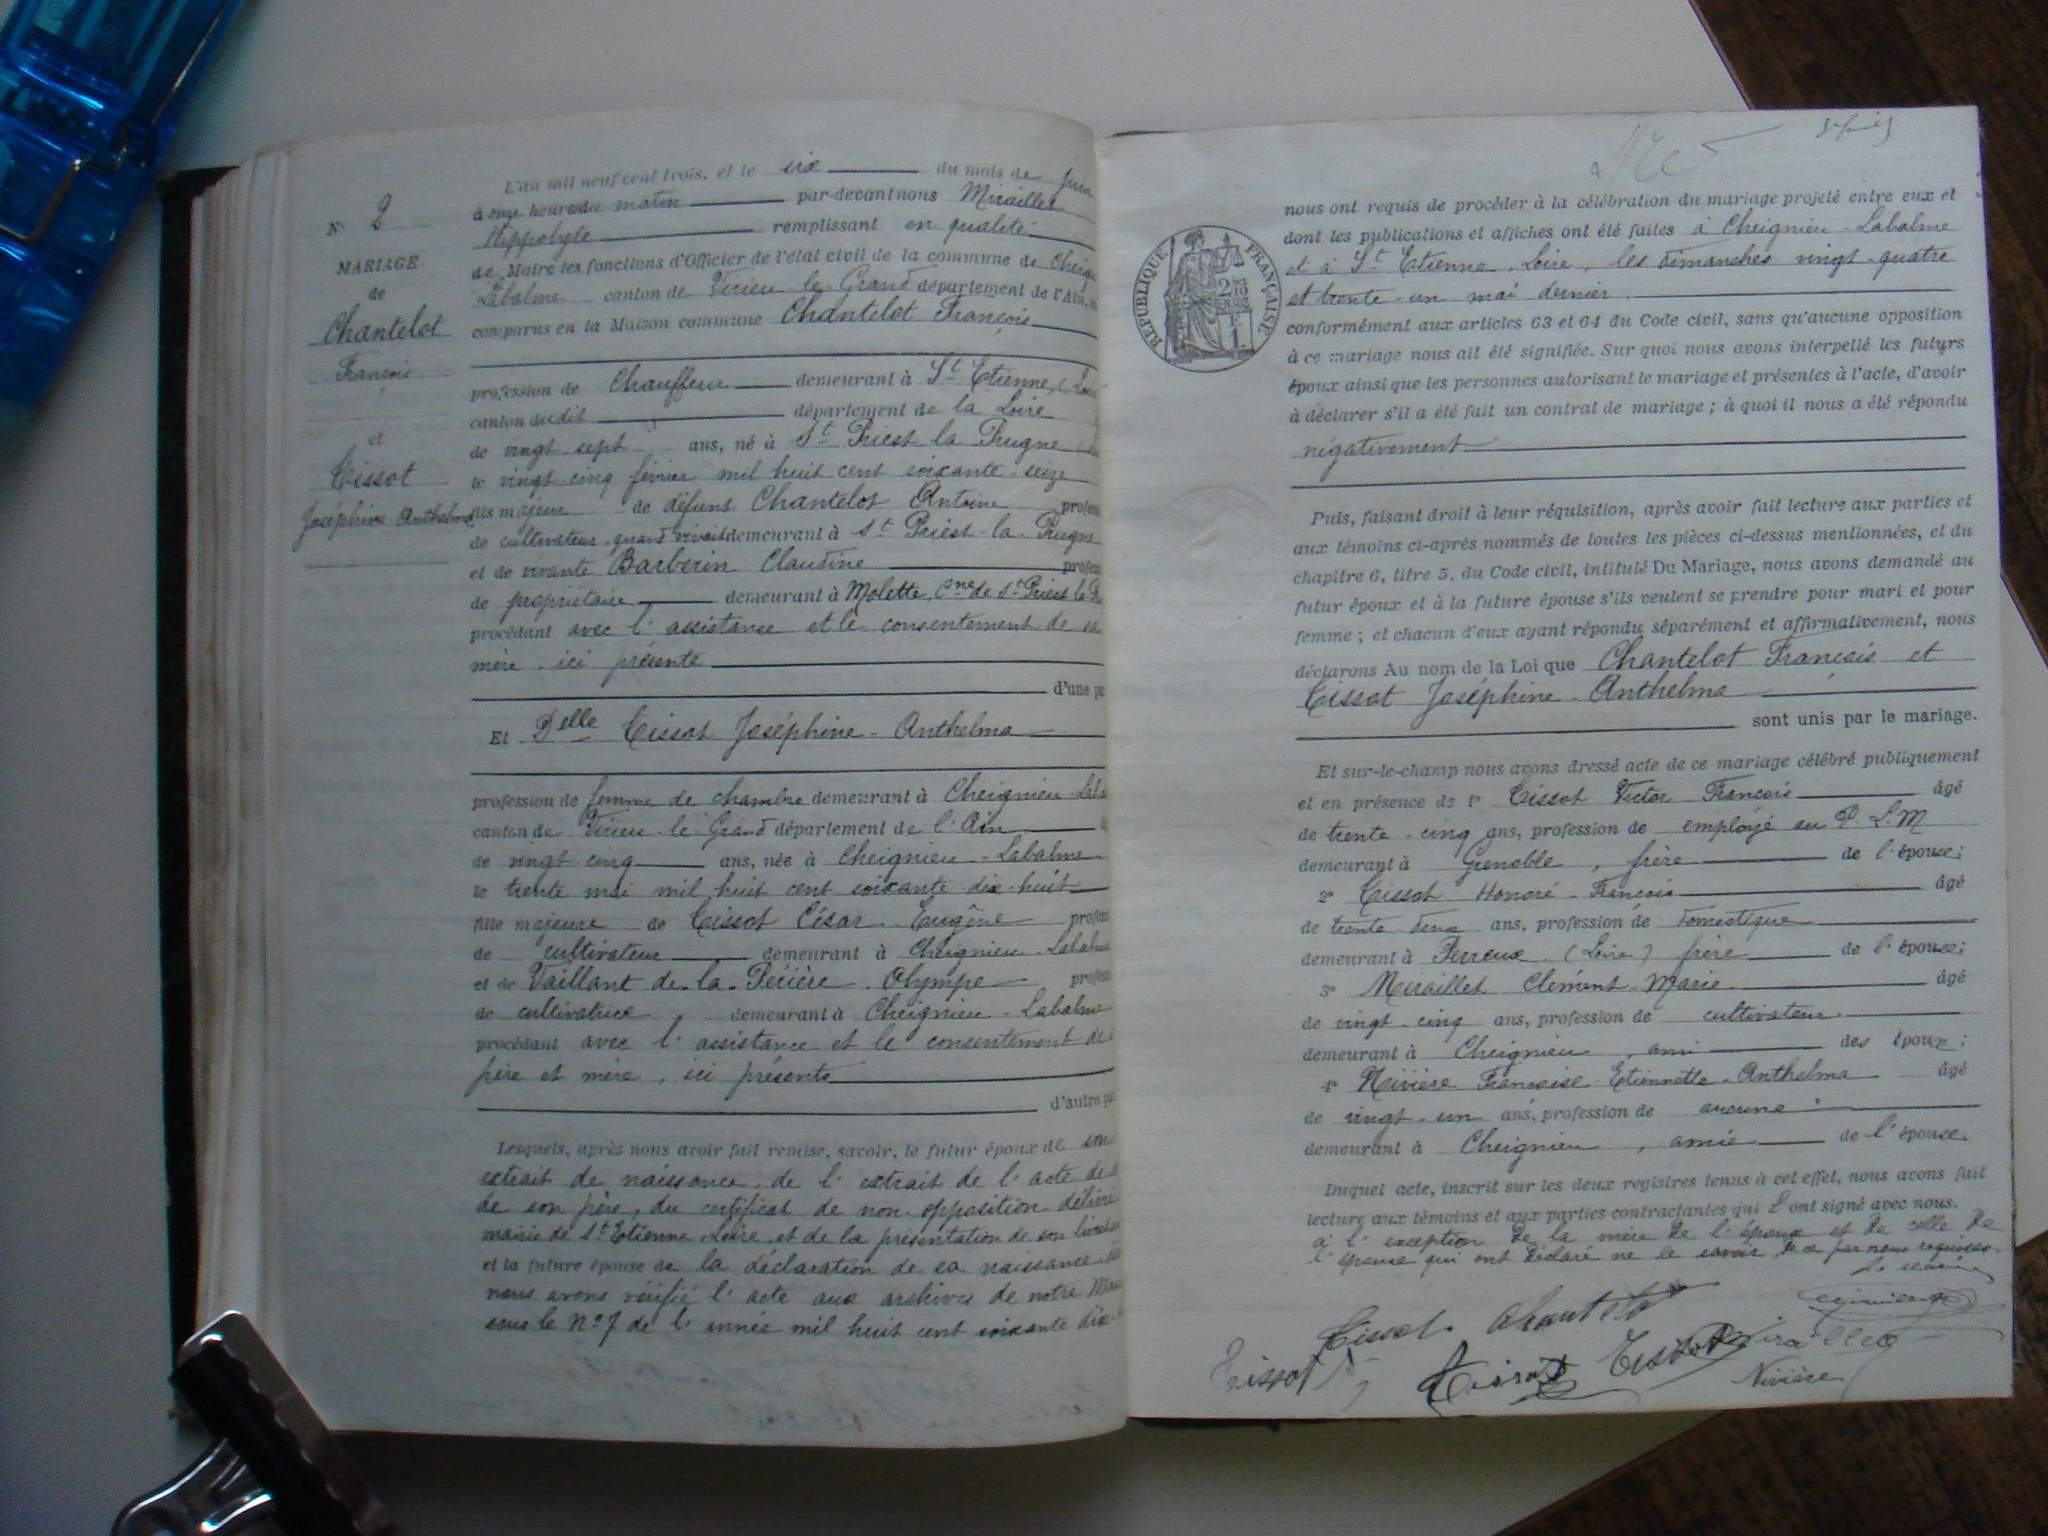 N° 2
MARIAGE
de
Chantelot
François
et
Tissot
Joséphine Anthelma
L'an mil neuf cent trois, et le six du mois de juin
à onze heures du matin par-devant nous Miraillet
Hippolyte remplissant en qualité
de Maire les fonctions d'Officier de l'état civil de la commune de Cheign
Labalme canton de Virieu-le-Grand département de l'Ain,
comparus en la Maison commune Chantelot François
profession de Chauffeur demeurant à St Etienne, (Loire
canton dudit département de la Loire
de vingt-sept ans, né à St Priest la Prugne
le vingt-cinq février mil huit cent soixante-seize
fils majeur de défunt Chantelot Antoine profess
de cultivateur quand vivait demeurant à St Priest-la-Prugne
et de vivante Barberin Claudine profess
de propriétaire demeurant à Molette, Cne de St Priest la P
procédant avec l'assistance et le consentement de sa
mère, ici présente
d'une pa
Et Delle Tissot Joséphine-Anthelma
profession de femme de chambre demeurant à Cheignieu-Laba
canton de Virieu-le-Grand département de l'Ain
de vingt-cinq ans, née à Cheignieu-Labalme
le trente mai mil huit cent soixante-dix-huit
fille majeure de Tissot César-Eugène profess
de cultivateur demeurant à Cheignieu-Labalme
et de Vaillant-de-la-Périère Olympe profess
de cultivatrice demeurant à Cheignieu-Labalme
procédant avec l'assistance et le consentement de
père et mère, ici présents
d'autre pa
Lesquels, après nous avoir fait remise, savoir, le futur époux de son
extrait de naissance, de l'extrait de l'acte de
de son père, du certificat de non-opposition délivré
mairie de St Etienne, Loire, et de la présentation de son livret
et la future épouse de la déclaration de sa naissance
nous avons vérifié l'acte aux archives de notre Mai
sous le N° 7 de l'année mil huit cent soixante-dix-
REPUBLIQUE FRANÇAISE
nous ont requis de procéder à la célébration du mariage projeté entre eux et
dont les publications et affiches ont été faites à Cheignieu-Labalme
et à St Etienne, Loire, les dimanches vingt-quatre
et trente-un mai dernier.
conformément aux articles 63 et 64 du Code civil, sans qu'aucune opposition
à ce mariage nous ait été signifiée. Sur quoi nous avons interpellé les futurs
époux ainsi que les personnes autorisant le mariage et présentes à l'acte, d'avoir
à déclarer s'il a été fait un contrat de mariage ; à quoi il nous a été répondu
négativement
Puis, faisant droit à leur réquisition, après avoir fait lecture aux parties et
aux témoins ci-après nommés de toutes les pièces ci-dessus mentionnées, et du
chapitre 6, titre 5, du Code civil, intitulé Du Mariage, nous avons demandé au
futur époux et à la future épouse s'ils veulent se prendre pour mari et pour
femme ; et chacun d'eux ayant répondu séparément et affirmativement, nous
déclarons Au nom de la Loi que Chantelot François et
Tissot Joséphine-Anthelma
sont unis par le mariage.
Et sur-le-champ nous avons dressé acte de ce mariage célébré publiquement
et en présence de 1° Tissot Victor François âgé
de trente-cinq ans, profession de employé au P.L.M
demeurant à Grenoble, frère de l'épouse ;
2° Tissot Honoré-François âgé
de trente-deux ans, profession de domestique
demeurant à Perreux (Loire) frère de l'épouse ;
3° Miraillet Clément-Marie âgé
de vingt-cinq ans, profession de cultivateur
demeurant à Cheignieu, ami des époux ;
4° Nivière Françoise-Etiennette-Anthelma âgé
de vingt-un ans, profession de aucune
demeurant à Cheignieu, amie de l'épouse.
Duquel acte, inscrit sur les deux registres tenus à cet effet, nous avons fait
lecture aux témoins et aux parties contractantes qui l'ont signé avec nous.
à l'exception de la mère de l'époux et de celle de
l'épouse qui ont déclaré ne le savoir, de ce par nous requises.
Tissot Chantelot
Tissot V Tissot Tissot Miraillet
Nivière